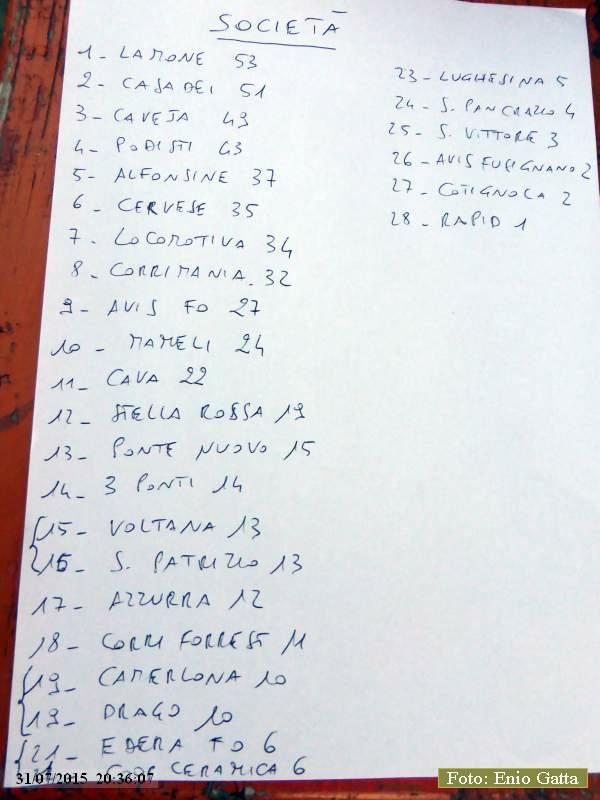 SOCIETÀ
1 - LAMONE 53
2 - CASADEI 51
3 - CAVEJA 49
4 - PODISTI 43
5 - ALFONSINE 37
6 - CERVESE 35
7 - LOCOMOTIVA 34
8 - CORRIMANIA. 32
9 - AVIS FO 27
10 - MAMELI 24
11 - CAVA 22
12 - STELLA ROSSA 19
13 - PONTE NUOVO 15
14 - 3 PONTI 14
15 - VOLTANA 13
15 - S. PATRIZIO 13
17 - AZZURRA 12
18 - CORRI FORREST 11
19 - CAMERLONA 10
19 - DRAGO 10
21 - EDERA FO 6
21 - COOP CERAMICA 6
23 - LUGHESINA 5
24 - S. PANCRAZIO 4
25 - S. VITTORE 3
26 - AVIS FUSIGNANO 2
27 - COTIGNOLA 2
28 - RAPID 1
31/07/2015 20:36:07
Foto: Enio Gatta